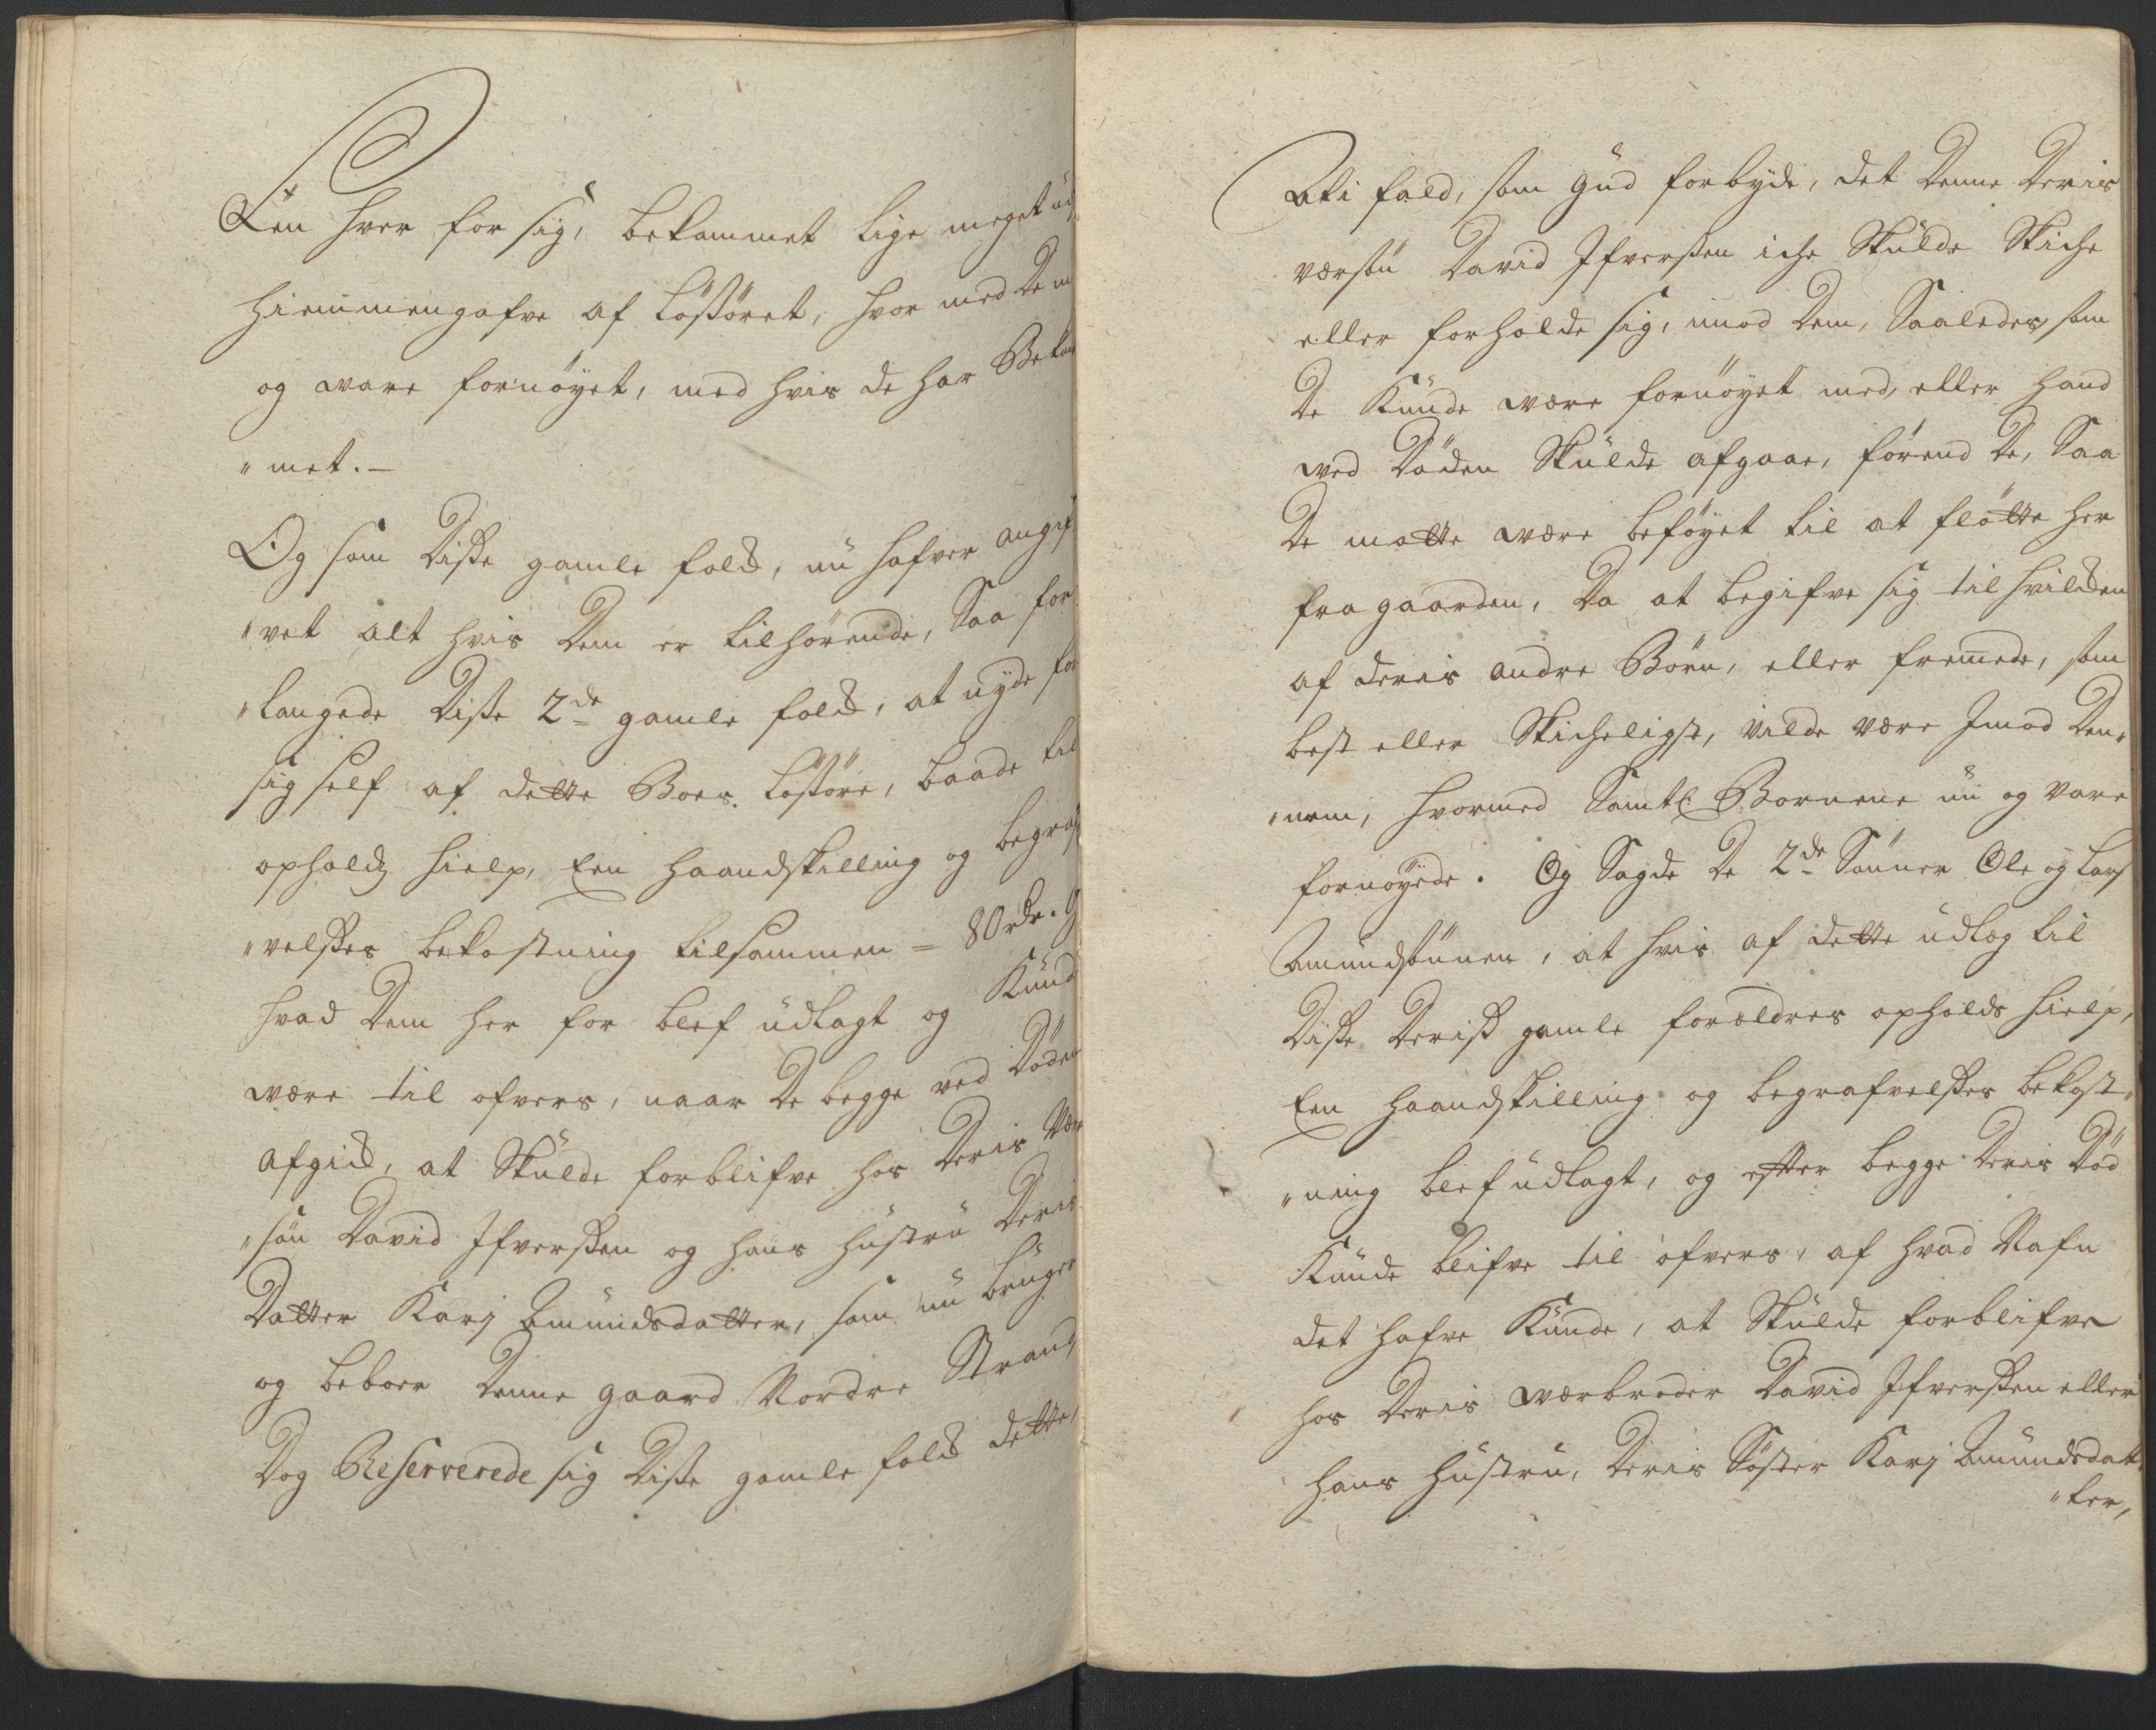 Een hver for sig, bekommet lige meget ud
hiemmengafve af Løsøret, hvor med de m
og ware fornøyet, med hvis de har Bekom
"met.—
Og som Disse gamle folck, nu hafver angif
"vet alt hvis Dem er tilhørende, Saa for
"langede Disse 2de gamle folck, at nyde for
sig self af dette Boes Løsøre, baade til
opholds hielp, Een haandskilling og begraf
"velsses bekostning tilsammen = 80 rdr. Og
hvad Dem her for blef udlagt og Kunde
være til ofvers, naar De begge ved Døden
afgick, at Skulde forblifve hos Deris Vær
"søn David Ifverssen og hans hustru Deris
Datter Karj Amundsdatter, som nu bruger
og beboer Denne gaard Nordre Strand
Dog Reserverede sig Disse gamle folck dette,
At i fald, som Gud forbyde, det Denne Deris
værsøn David Ifverssen iche Skulde Skiche
eller forholde sig, imod Dem, Saaledes som
De Kunde være fornøyet med, eller hand
ved Døden Skulde afgaae,førend De, Saa
De motte være beføyet til at fløtte her
fra gaarden, Da at begifve sig til hvilcken
af deris andre Børn, eller fremede, som
best eller Skicheligst, vilde være Imod Den-
"nem, hvormed Samtl. Bornene nu og vare
fornøyede. Og Sagde De 2de Sønner Ole og Lars
Amundsønner, at hvis af dette udlæg til
Disse Deriss gamle forældres opholds hielp,
Een haandskilling og begrafvelsses bekost-
"ning blef udlagt, og efter begge Deris Død
Kunde blifve til ofvers, af hvad Nafn
det hafve Kunde, at Skulde forblifve
hos Deris værbroder David Ifverssen eller
hans hustru, Deris Søster Karj Amundsdat-
"ter,